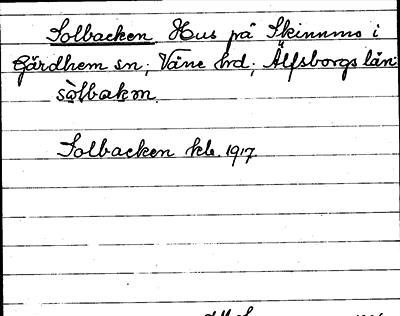 Solbacken Hus på Skinnmo i
Gärdhem sn; Väne hrd; Älfsborgs län
sòlbakɘn.
Solbacken kb. 1917.